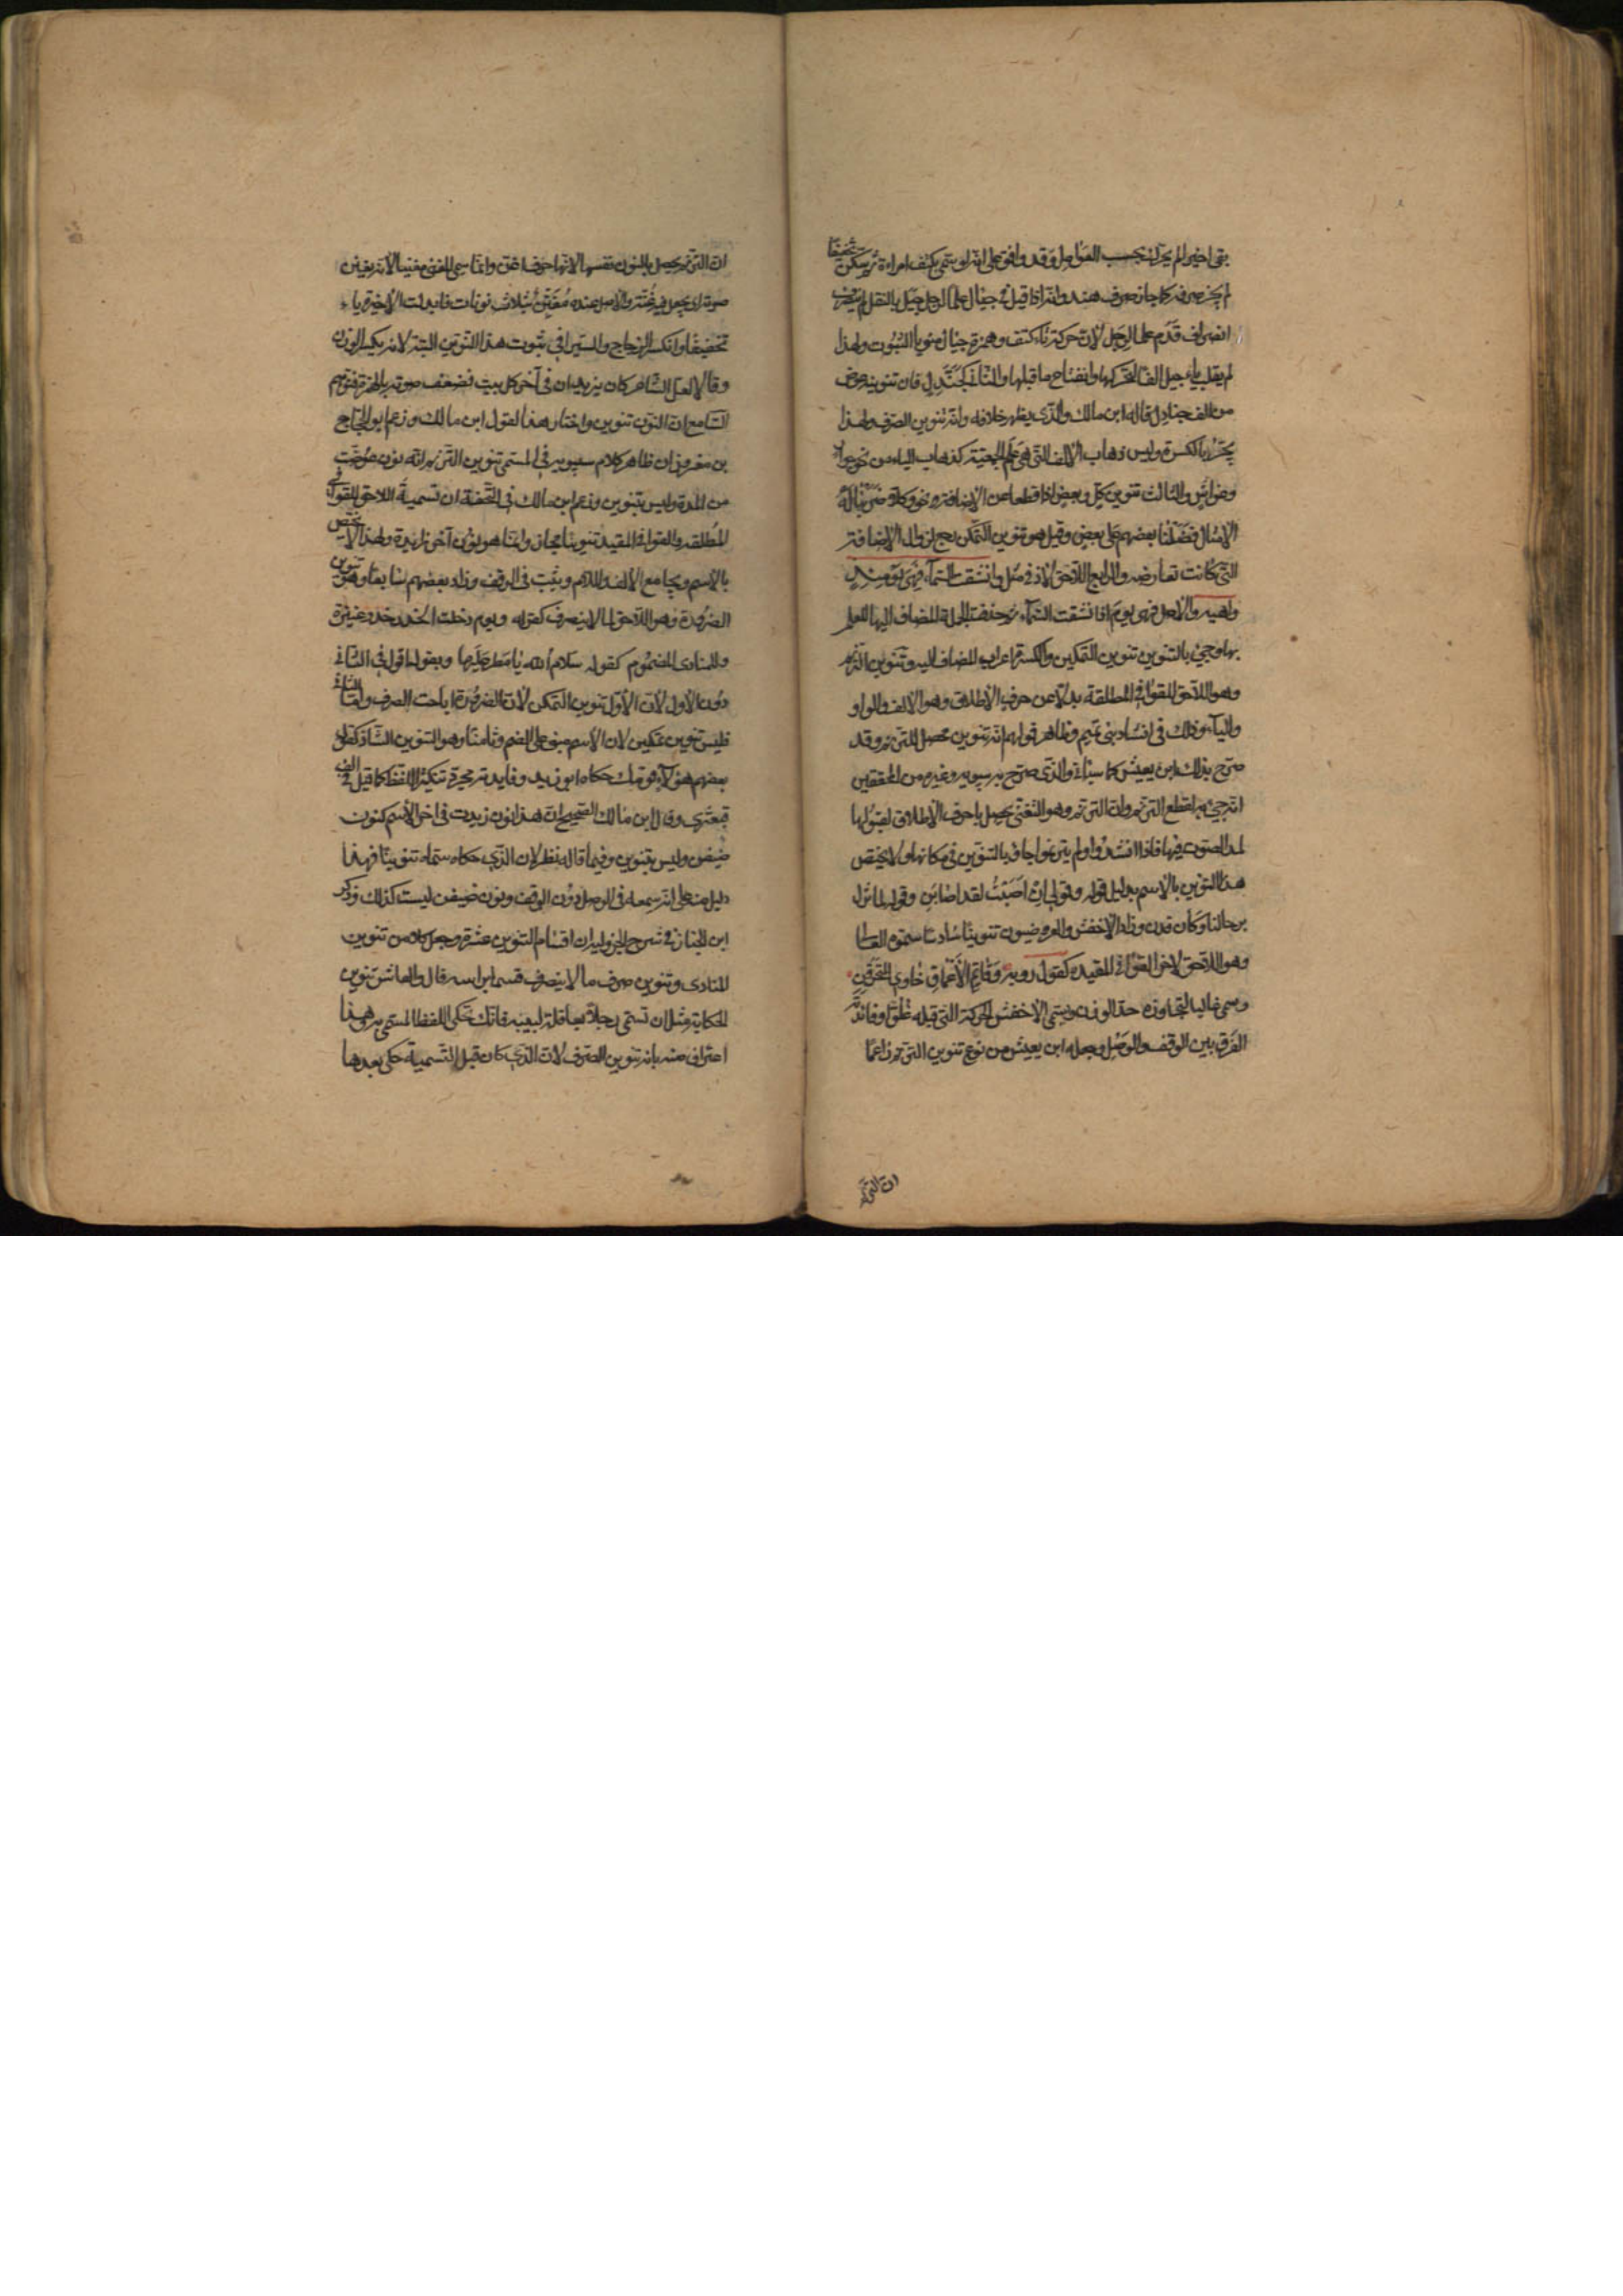 بقي اخيرا لم يجز ان يحسب الفواصل وقد وافق على انه لو سمي بكتف امراءة ثم سكن تخفيفا
لم يجز صرفه كما جاز صرف هند وانه اذا قيل في جيال علما لرجل جيل بالنقل لم ينصرف
انصراف قدم علما لرجل لان حركة تاء كتف وهمزة جيال منويا الثبوت ولهذا
لم يقلب ياء جيل الفا لتحركها وانفتاح ما قبلها والثاني كجندل فان تنوينه عوض
من الف جنادل قاله ابن مالك والذي يظهر خلافه وانه تنوين الصرف ولهذا
يجر بالكسرة وليس ذهاب الالف التي هي علم الجمعية كذهاب الياء من نحو جوار
وغواش والثالث تنوين كل وبعض اذا قطعا عن الاضافة نحو وكلا ضربنا له
الامثال فضلنا بعضهم على بعض وقيل هو تنوين التمكن رجع لزوال الاضافة
التي كانت تعارضه والرابع اللاحق لاذ في مثل وانشقت السماء فهي يومئذ
واهية والاصل فهي يوم اذا نشقت السماء ثم حذفت الجملة المضاف اليها للعلم
بها وجيئ بالتنوين تنوين التمكين والكسرة اعراب المضاف اليه وتنوين الترنم
وهو اللاحق للقوافي المطلقة بدلا عن حرف الاطلاق وهو الالف والواو
والياء وذلك في انشاد بني تميم وظاهر قولهم انه تنوين محصل للترنم وقد
صرح بذلك ابن يعيش كما سيأتي والذي صرح به سيبويه وغيره من المحققين
انه جيئ به لقطع الترنم وان الترنم وهو التغني يحصل باحرف الاطلاق لقبولها
لمد الصوت فيها فاذا انشدوا ولم يترنموا جاؤ بالتنوين في مكانها ولا يختص
هذا التنوين بالاسم بدليل قوله وقولي ان اصبت لقد اصابن وقوله لما تزل
برحالنا وكان قدن وزاد الاخفش والعروضيون تنوينا سادسا سموه الغالى
وهو اللاحق لاخر القوافي المقيدة كقول روبة وقاتم الاعماق خاوي المخترقن
وسمي غاليا لتجاوزه حد الوزن ويسمي الاخفش الحركة التي قبله غلوا وفائدته
الفرق بين الوقف والوصل وجعله ابن يعيش من نوع تنوين الترنم زاعما
ان الترنم
ان الترنم يحصل بالنون نفسها لانها حرف اغن وانما سمي المغني مغنيا لانه يغنن
صوته اي يجعل فيه غنة والاصل عنده مغنن بثلاث نونات فابدلت الاخيرة ياء
تخفيفا وانكر الزجاج والسيرافي ثبوت هذا التنوين البتة لانه يكسر الوزن
وقالا لعل الشاعر كان يزيد ان في آخر كل بيت فضعف صوته بالهمزة فتوهم
السامع ان النون تنوين واختار هذا القول ابن مالك وزعم ابو الحجاج
بن معزوز ان ظاهر كلام سيبويه في المسمى تنوين الترنم انه نون عوضت
من المدة وليس بتنوين وزعم ابن مالك في التحفة ان تسمية اللاحق للقوافي
المطلقه والقوافي المقيدة تنوينا مجاز وانما هو نون آخر زايدة ولهذا لا يختص
بالاسم ويجامع الالف واللام ويثبت في الوقف وزاد بعضهم سابعا وهو تنوين
الضرورة وهو اللاحق لما لا ينصرف كقوله ويوم دخلت الخدر خدر عنيزة
وللمنادى المضموم كقوله سلام الله يا مطر عليها وبقولها اقول في الثاني
دون الاول لان الاول تنوين التمكن لان الضرورة اباحت الصرف واما الثاني
فليس تنوين تمكين لان الاسم مبني على الضم وثامنا وهو التنوين الشاذ كقول
بعضهم هؤلآء قومك حكاه ابو زيد وفايدته مجرد تنكير اللفظ كما قيل في الف
قبعثرى وقال ابن مالك الصحيح ان هذا نون زيدت في اخر الاسم كنون
ضيفن وليس بتنوين وفيما قاله نظر لان الذي حكاه سماه تنوينا فهذا
دليل منه على انه سمعه في الوصل دون الوقف ونون ضيفن ليست كذلك وذكر
ابن الخباز في شرح الجزولية ان اقسام التنوين عشرة وجعل كلا من تنوين
المنادى وتنوين صرف ما لا ينصرف قسما براسه قال والعاشر تنوين
الحكاية مثل ان تسمي رجلا بعاقلة لبيبة فانك تحكي اللفظ المسمى به وهذا
اعتراف منه بانه تنوين الصرف لان الذي كان قبل التسمية حكي بعدها